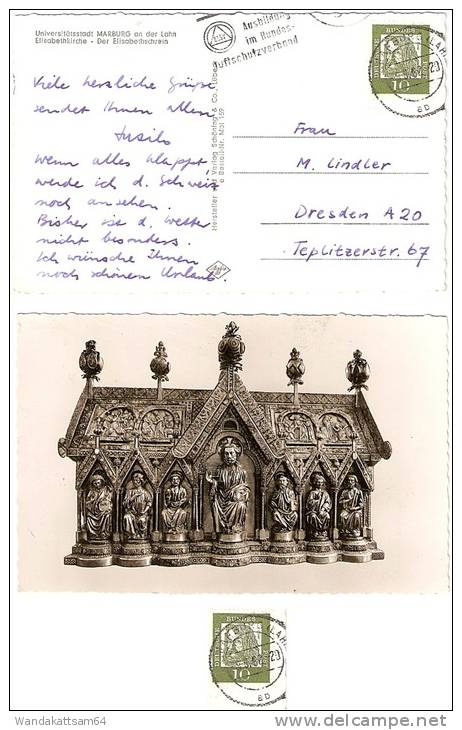 Universitätsstadt MARBURG an der Lahn
Elisabethkirche - Der Elisabethschrein
Ausbildung
im Bundes-
luftschutzverband
DEUTSCHE BUNDESPOST
10
LAHN
20
ab
Viele herzliche Grüße
sendet Ihnen allen,
Wenn alles klappt,
werde ich d. Schweiz
noch ansehen.
Bisher ist d. Wetter
nicht besonders.
Ich wünsche Ihnen
noch schönen Urlaub.
Hersteller und Verlag Schöning & Co., Lübeck
Bestell-Nr. Mbl 159
Frau
M. Lindler
Dresden A 20
Teplitzerstr. 67
DEUTSCHE BUNDESPOST
10
LAHN
20
ab
Wandakattsam64